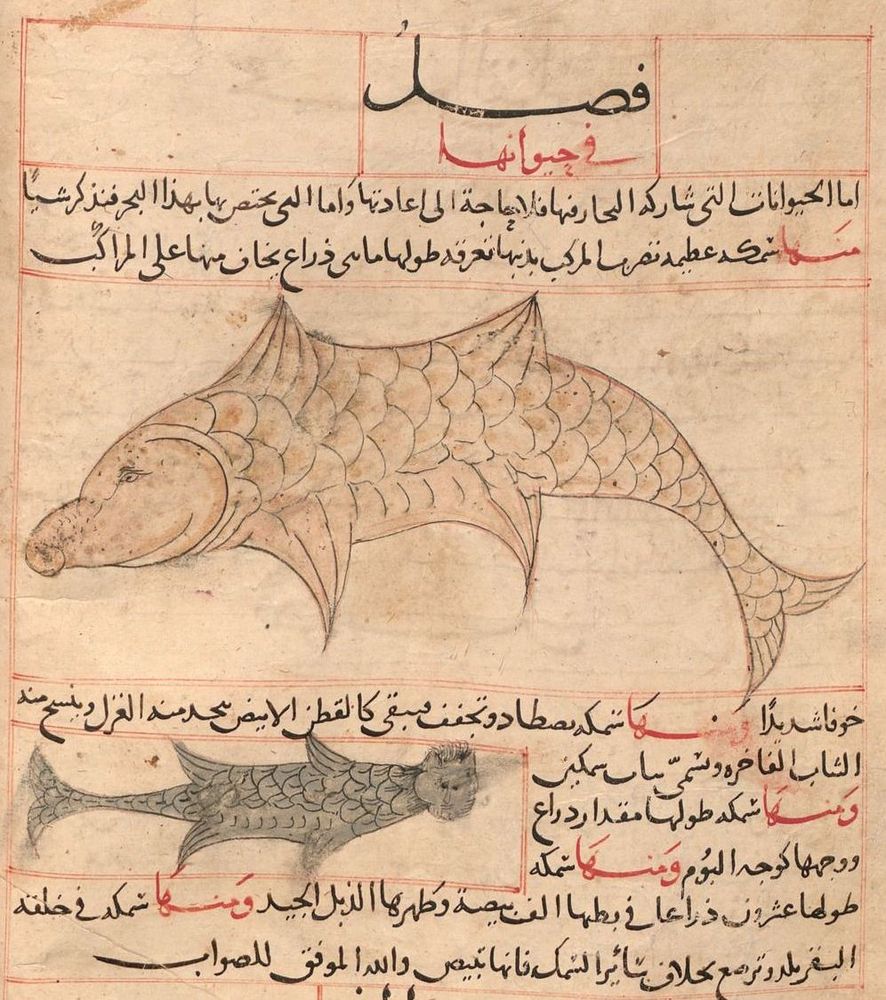 فصل
في حيوانها
اما الحيوانات التى شاركه البحار فيها فلا حاجة الى اعادتها واما التى يختص بها بهذا البحر فنذكر شيأ
منها سمكه عظيمه تضرب المركب بذنبها تغرقه طولها مايتى ذراع يخاف منها على المراكب
خوفا شديدًا ومنها سمكه يصطاد وتجفف فيبقى كالقطن الابيض يتخذ منه الغزل وينسج منه
الثياب الفاخره وتسمّى ثياب سمكين
ومنها سمكه طولها مقدار ذراع
ووجهها كوجه البوم ومنها سمكه
طولها عشرون ذراعا في بطنها الف بيضة وظهرها الذبل الجيد ومنها سمكه في خلقة
البقر يلد وترضع بخلاف سائر السمك فانها تبيض والله الموفق للصواب